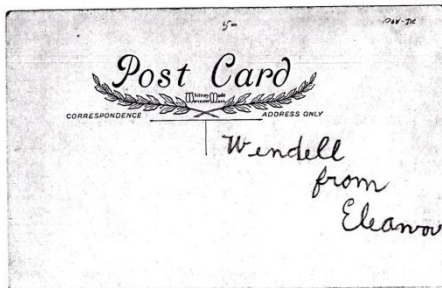 5-
Post Card
Whitney Made
Worcester, Mass.
CORRESPONDENCE
ADDRESS ONLY
Wendell
from
Eleanor